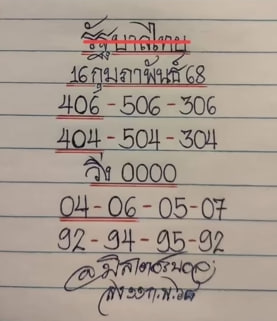 รัฐบาลไทย
16 กุมภาพันธ์ 68
406 - 506 - 306
404 - 504 - 304
วิ่ง 0000
04 - 06 - 05 - 07
92 - 94 - 95 - 92